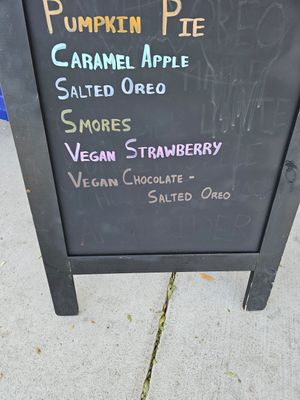 PUMPKIN PIE
CARAMEL APPLE
SALTED OREO
SMORES
VEGAN STRAWBERRY
VEGAN CHOCOLATE -
SALTED OREO